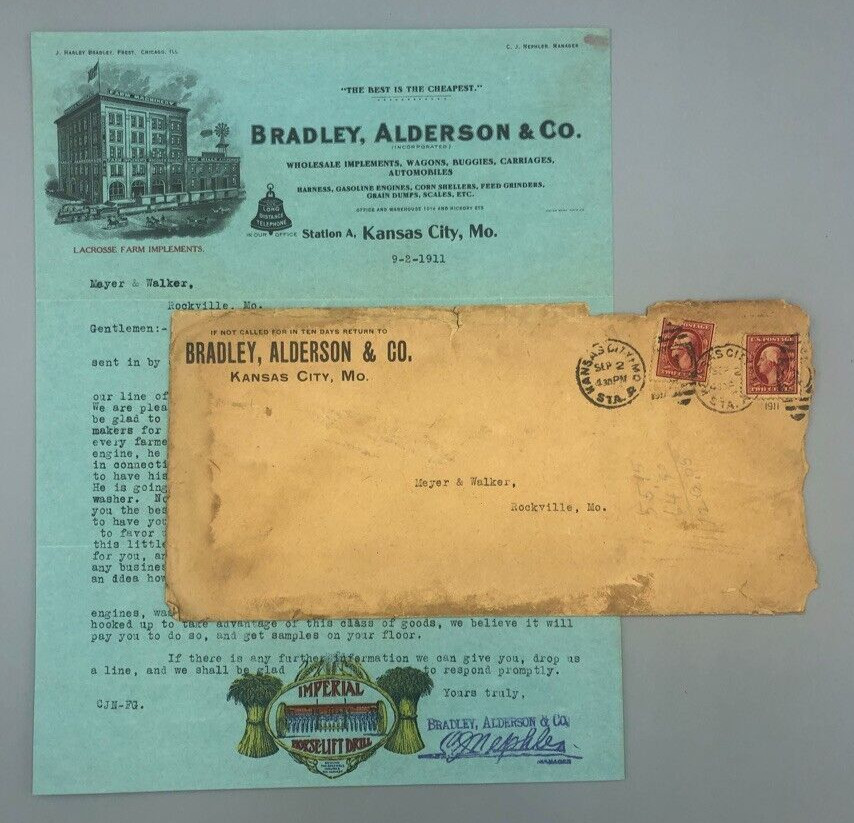 J. Harley Bradley, Prest. Chicago, Ill.
C. J. Nephler, Manager
FARM MACHINERY
"THE BEST IS THE CHEAPEST."
BRADLEY, ALDERSON & CO.
(INCORPORATED)
WHOLESALE IMPLEMENTS, WAGONS, BUGGIES, CARRIAGES,
AUTOMOBILES
HARNESS, GASOLINE ENGINES, CORN SHELLERS, FEED GRINDERS,
GRAIN DUMPS, SCALES, ETC.
OFFICE AND WAREHOUSE 10TH AND HICKORY STS.
LONG
DISTANCE
TELEPHONE
IN OUR OFFICE
Station A, Kansas City, Mo.
LACROSSE FARM IMPLEMENTS.
9-2-1911
Mayer & Walker,
Rockville, Mo.
Gentlemen:-
sent in by
our line of
We are plea
be glad to
makers for
every farme
engine, he
in connecti
to have his
He is going
washer. No
you the bes
to have you
to favor
this little
for you, an
any busines
an idea how
engines, was
hooked up to take advantage of this class of goods, we believe it will
pay you to do so, and get samples on your floor.
If there is any further information we can give you, drop us
a line, and we shall be glad to respond promptly.
Yours truly,
CJN-FG.
IMPERIAL
HORSE-LIFT DRILL
BRADLEY, ALDERSON & CO.
CJNephler
MANAGER
IF NOT CALLED FOR IN TEN DAYS RETURN TO
BRADLEY, ALDERSON & CO.
KANSAS CITY, MO.
KANSAS CITY, MO.
SEP 2
4:30PM
STA. A
1911
U.S. POSTAGE
1911
Mayer & Walker,
Rockville, Mo.